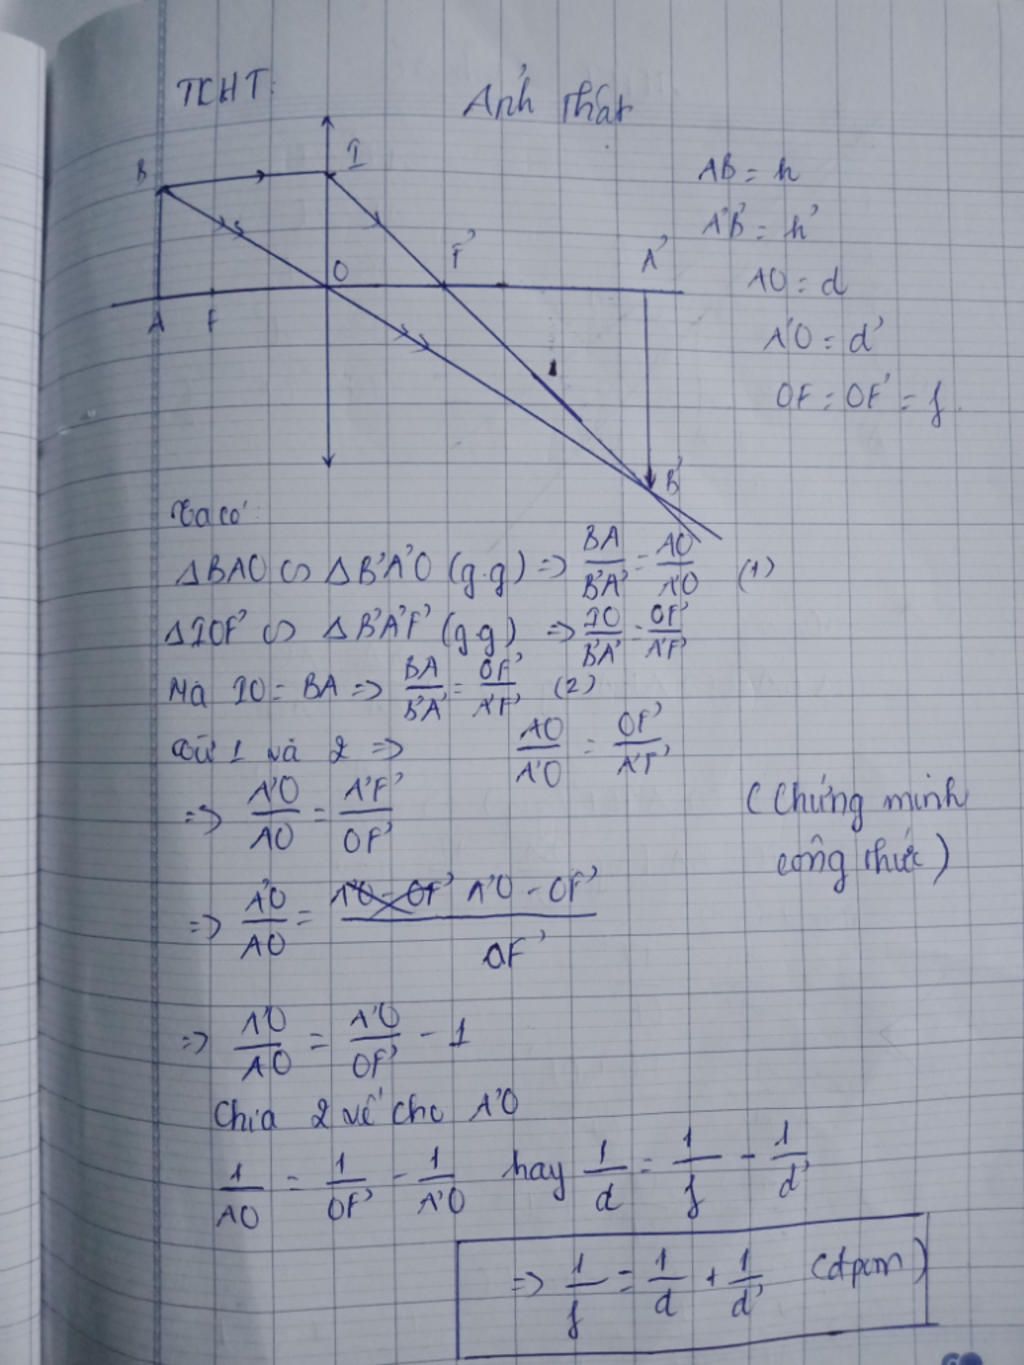 TKHT:
Ảnh thật
B
I
O
F'
A'
A
F
B'
AB = h
A'B' = h'
AO = d
A'O = d'
OF = OF' = f
Ta có:
ΔBAO ∽ ΔB'A'O (g.g) => BA/B'A' = AO/A'O (1)
ΔIOF' ∽ ΔB'A'F' (g.g) => IO/B'A' = OF'/A'F'
Mà IO = BA => BA/B'A' = OF'/A'F' (2)
Từ 1 và 2 => AO/A'O = OF'/A'F'
=> A'O/AO = A'F'/OF'
(Chứng minh
công thức)
=> A'O/AO = (A'O - OF')/OF'
=> A'O/AO = A'O/OF' - 1
Chia 2 vế cho A'O
1/AO = 1/OF' - 1/A'O hay 1/d = 1/f - 1/d'
=> 1/f = 1/d + 1/d' (đpcm)